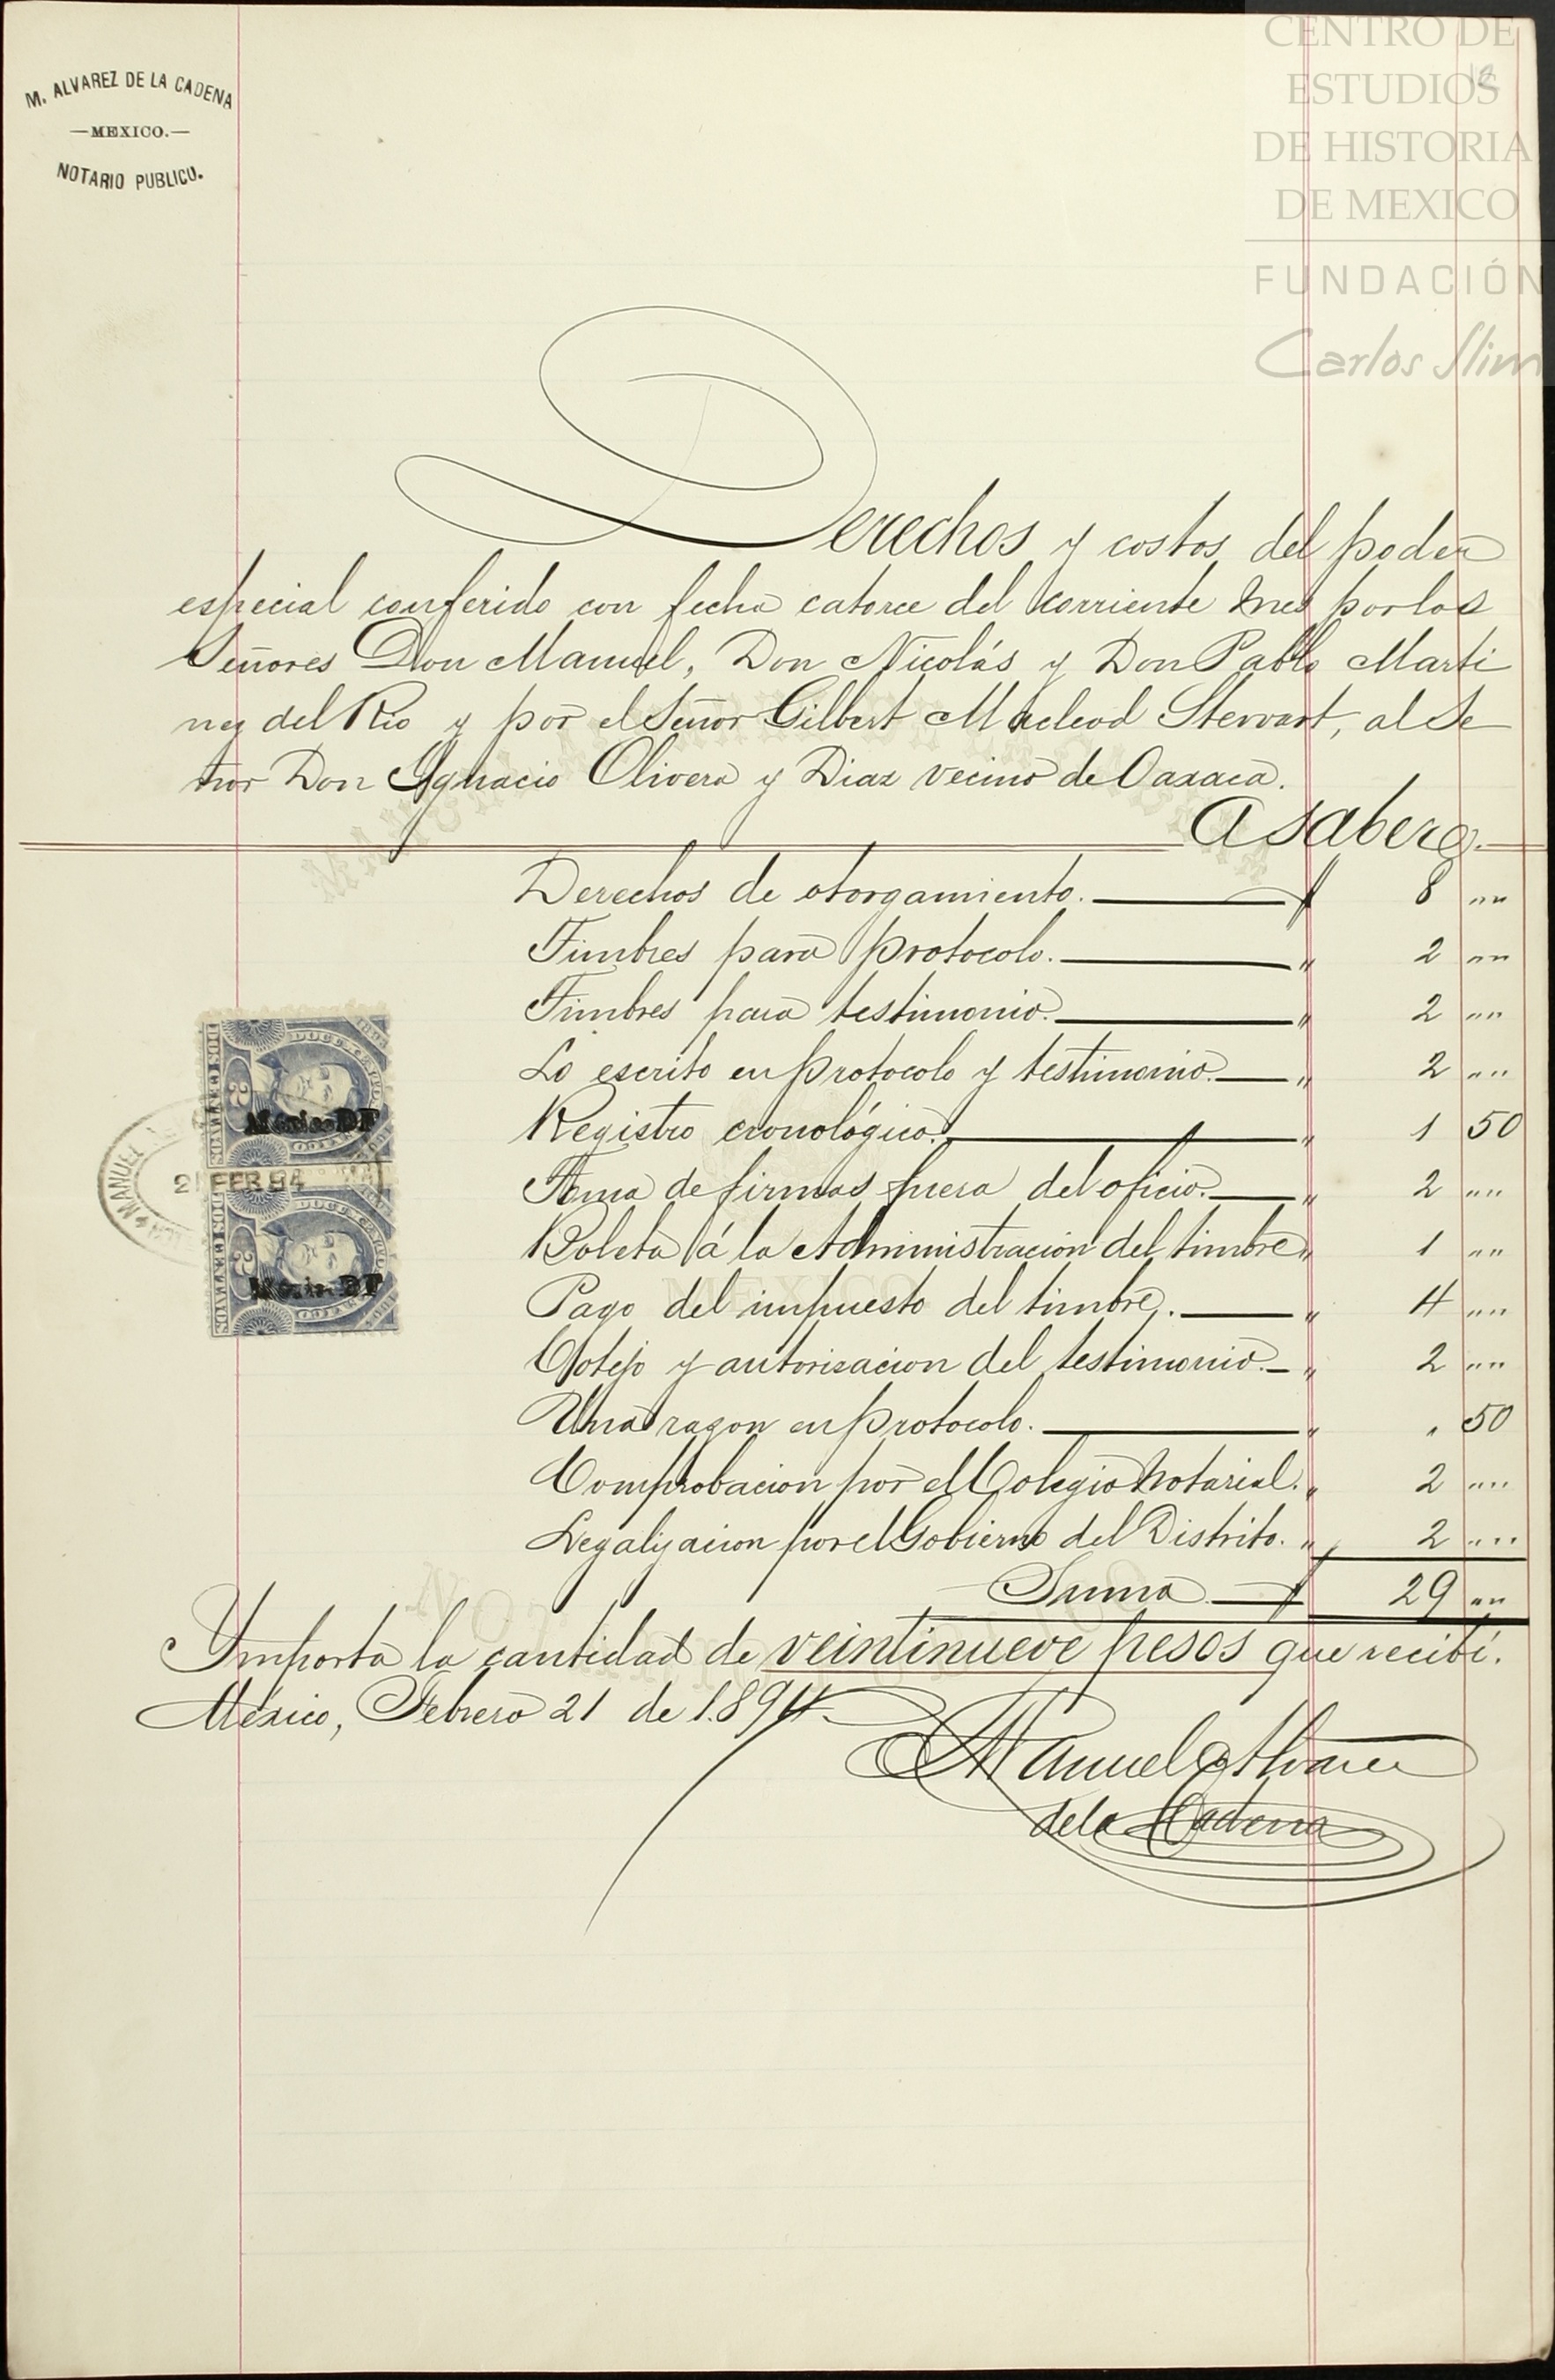 M. ALVAREZ DE LA CADENA
—MEXICO.—
NOTARIO PUBLICO.
CENTRO DE
ESTUDIOS
DE HISTORIA
DE MEXICO
FUNDACIÓN
Carlos Slim
Derechos y costos del poder
especial conferido con fecha catorce del corriente mes por los
Señores Don Manuel, Don Nicolás y Don Pablo Marti
nez del Rio y por el Señor Gilbert Macleod Stewart, al Se
ñor Don Ygnacio Olivera y Diaz vecino de Oaxaca.
A saber.
Derechos de otorgamiento. $ 8 „„
Timbres para protocolo. „ 2 „„
Timbres para testimonio. „ 2 „„
Lo escrito en protocolo y testimonio. „ 2 „„
Registro cronológico. „ 1 50
Toma de firmas fuera del oficio. „ 2 „„
Boleta á la Administracion del timbre „ 1 „„
Pago del impuesto del timbre. „ 4 „„
Cotejo y autorizacion del testimonio. „ 2 „„
Una razon en protocolo. „ „ 50
Comprobacion por el Colegio Notarial. „ 2 „„
Legalizacion por el Gobierno del Distrito. „ 2 „„
Suma $ 29 „„
Ymporta la cantidad de veintinueve pesos que recibí.
México, Febrero 21 de 1.894.
Manuel Alvarez
de la Cadena
DOS CENTAVOS
2
Mexico DF
MANUEL
21 FEB 94
DOS CENTAVOS
2
Mexico DF
MEXICO